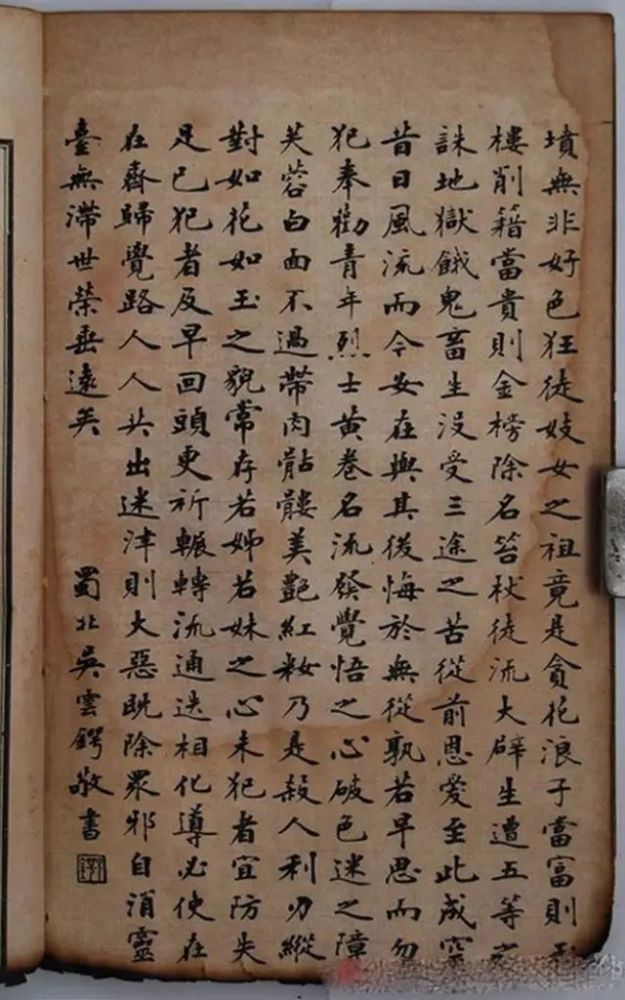 墳無非好色狂徒妓女之祖竟是貪花浪子當富則玉
樓削籍當貴則金榜除名笞杖徒流大辟生遭五等之
誅地獄餓鬼畜生沒受三途之苦從前恩愛至此成空
昔日風流而今安在與其後悔於無從孰若早思而勿
犯奉勸青年烈士黃卷名流發覺悟之心破色迷之障
芙蓉白面不過帶肉骷髏美艷紅粧乃是殺人利刃縱
對如花如玉之貌常存若姊若妹之心未犯者宜防失
足已犯者及早回頭更祈輾轉流通迭相化導必使在
在齊歸覺路人人共出迷津則大惡既除眾邪自消靈
臺無滯世榮垂遠矣
蜀北吳雲鍔敬書